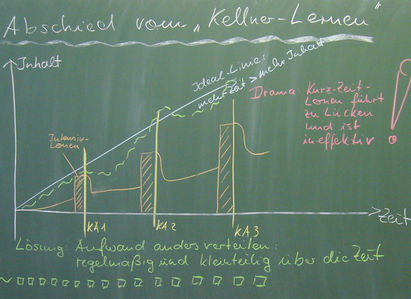 Abschied vom „Kellner-Lernen"
Inhalt
Ideal-Linie:
mehr Zeit > mehr Inhalt
Drama: Kurz-Zeit-
Lernen führt
zu Lücken
und ist
ineffektiv
!
Intensiv-
Lernen
Zeit
KA1
KA2
KA3
Lösung: Aufwand anders verteilen:
regelmäßig und kleinteilig über die Zeit